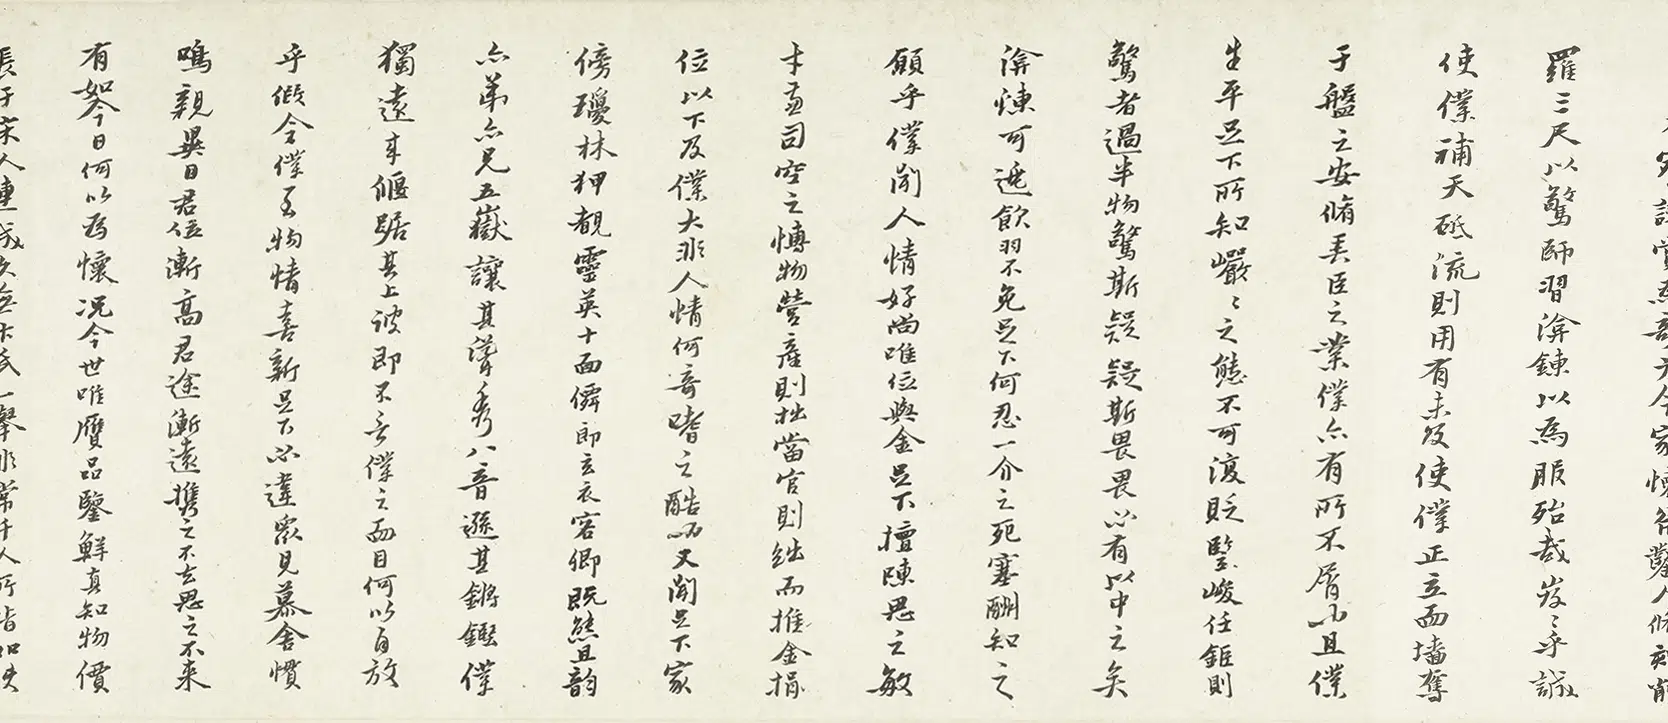 羅三尺以驚師習渰鍊以為服殆哉岌〻乎誠
使僕補天砥流則用有未及使僕正立而墦奪
于盤之安脩美臣之業僕亦有所不屑也且僕
生平足下所知巖〻之態不可復貶堅峻任鉅則
驚者過半物驚斯疑疑斯畏畏必有以中之矣
渰煉可逃飲羽不免足下何忍一介之死塞酬知之
願乎僕聞人情好尚唯位與金足下擅陳思之敏
才盡司空之博物營產則拙當官則絀而推金捐
位以下及僕大非人情何奇嗜之酷也又聞足下家
傍瓊林狎觀靈英十面儕即玄衣客卿既然且韵
亦弟亦兄五嶽讓其聳秀八音遜其鏘鏗僕
獨遠來偃踞其上彼即不言僕之面目何以自放
乎假令僕至物情喜新足下必違眾見慕舍慣
鳴親異日君位漸高君途漸遠攜之不去思之不來
有如今日何以為懷況今世唯贋品鑒鮮真知物價